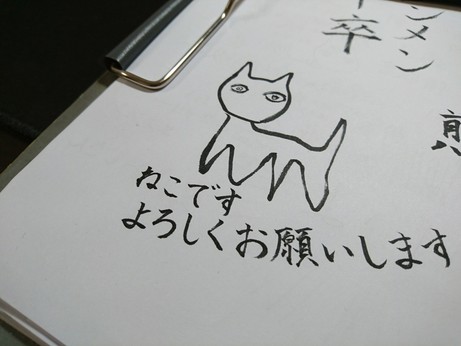 ンメン
卒
煎
ねこです
よろしくお願いします